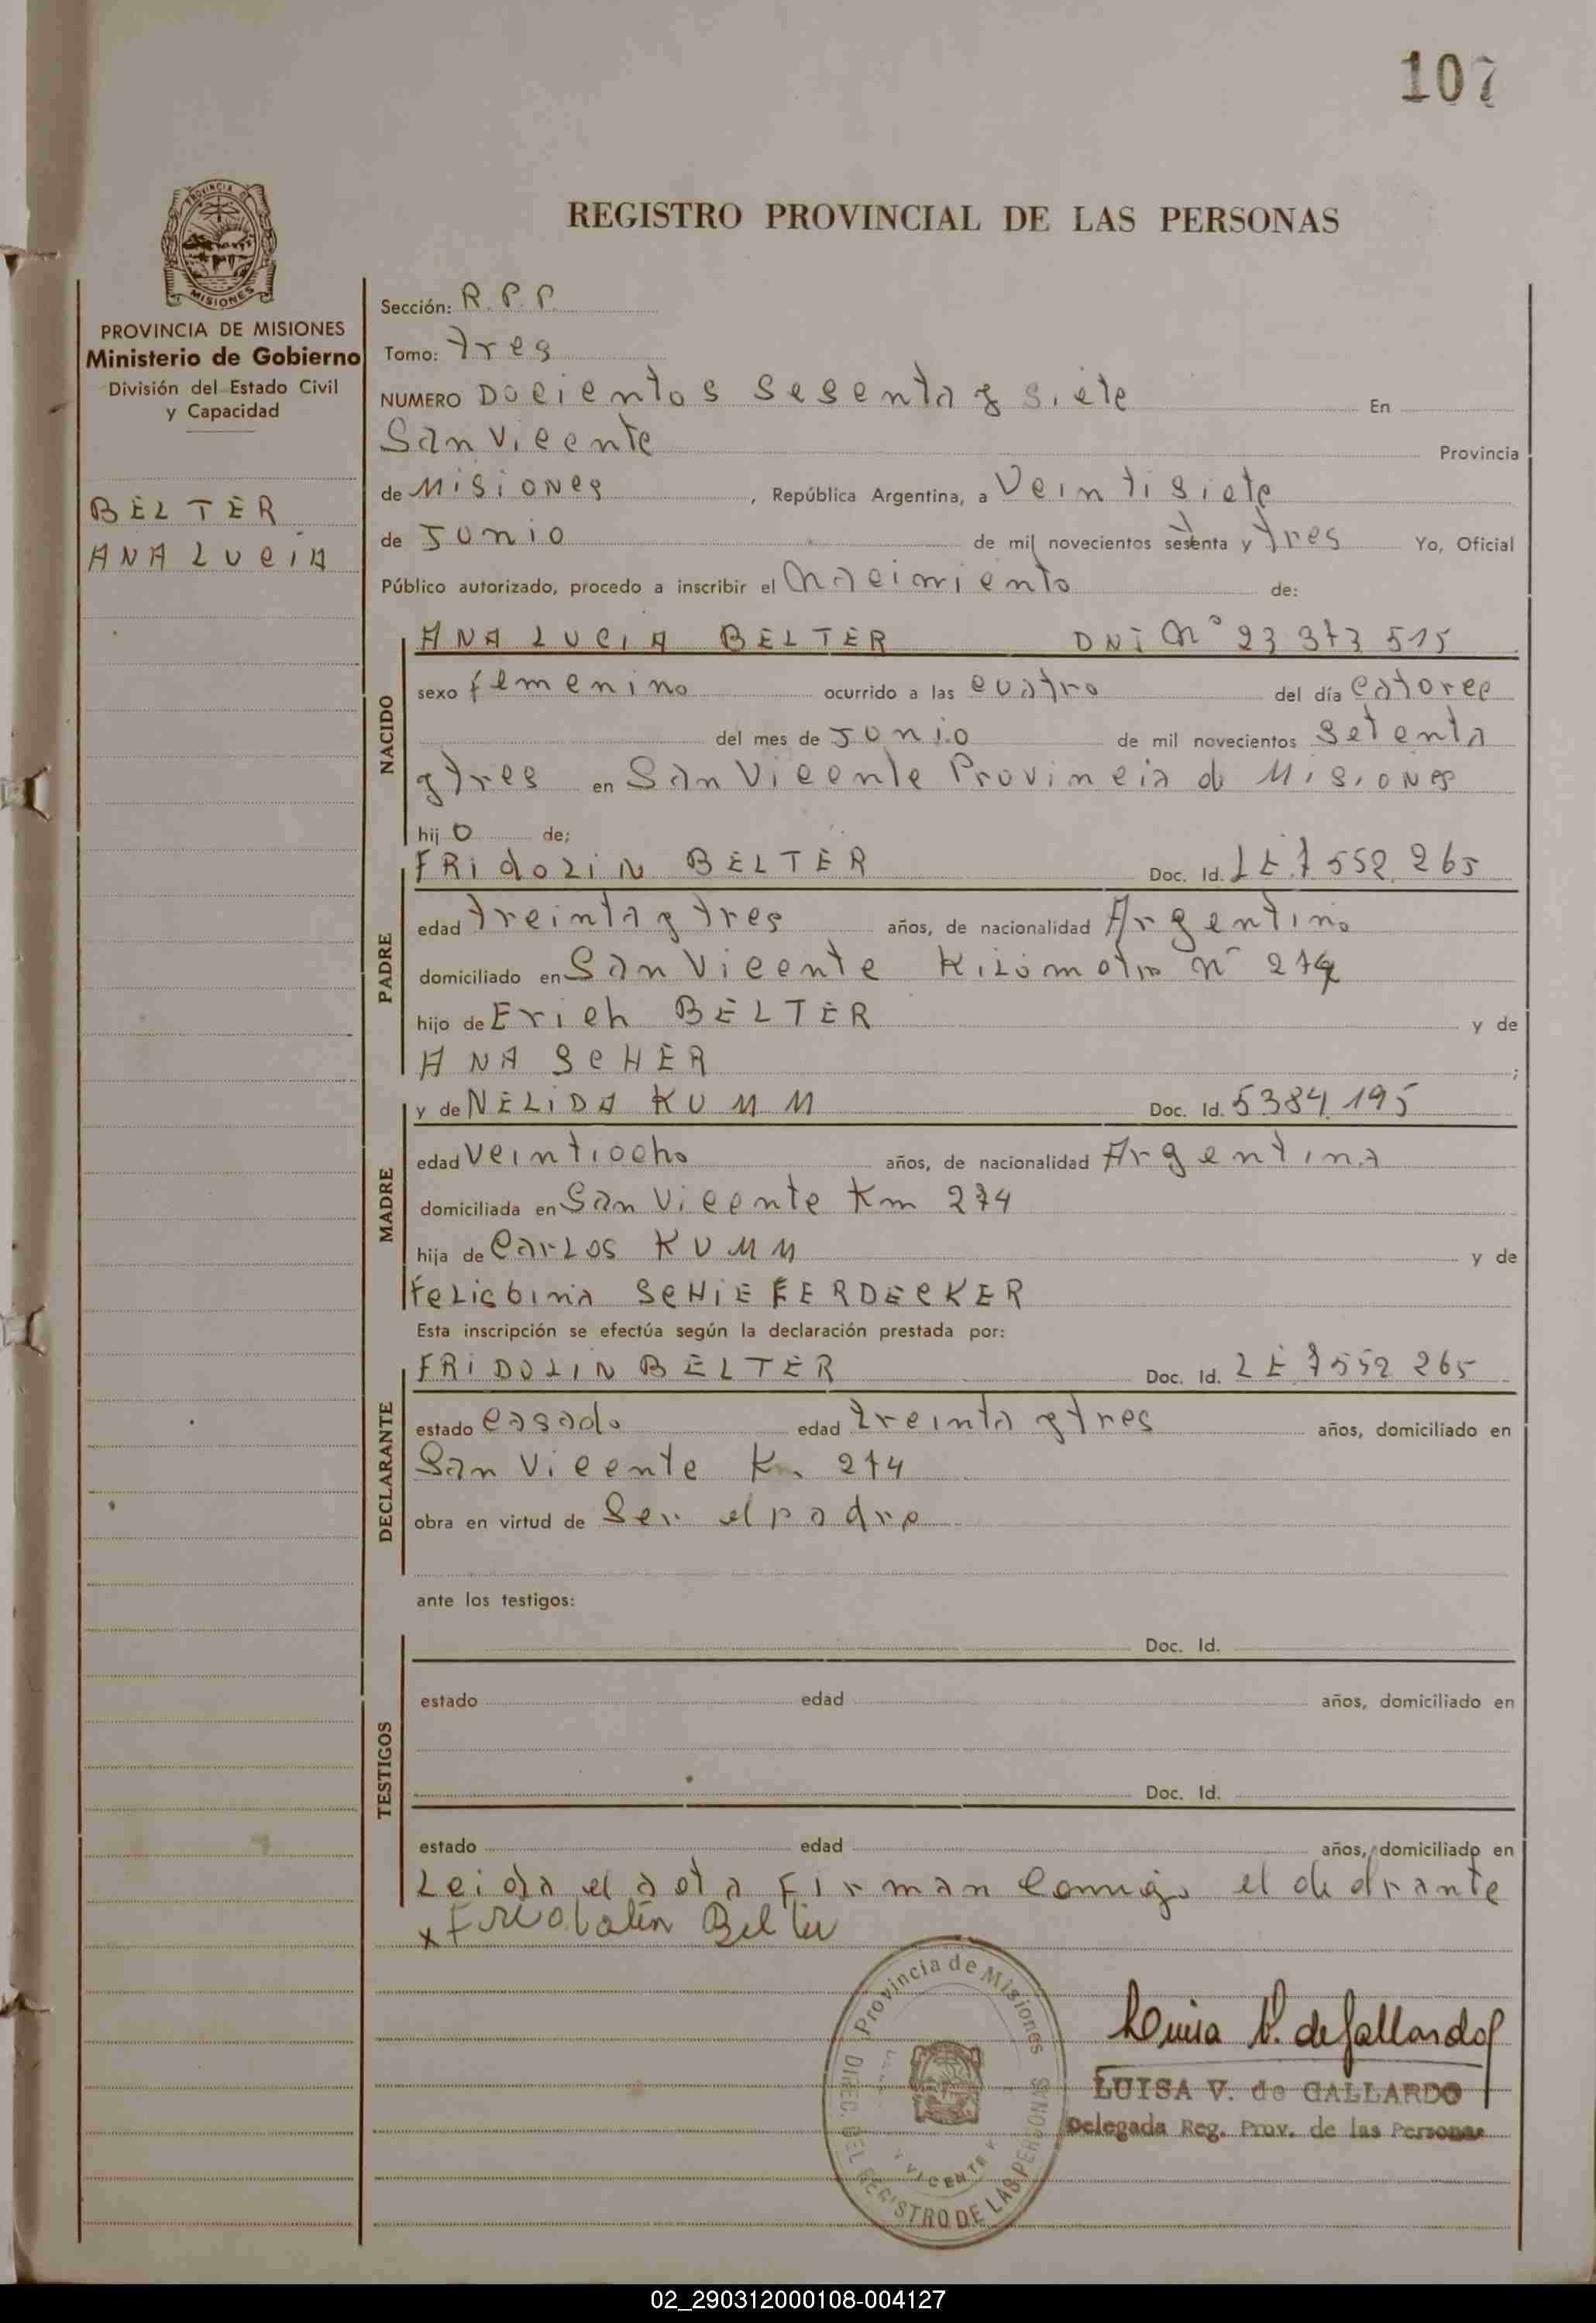 107
REGISTRO PROVINCIAL DE LAS PERSONAS
PROVINCIA DE
MISIONES
PROVINCIA DE MISIONES
Ministerio de Gobierno
División del Estado Civil
y Capacidad
BELTER
ANA LUCIA
Sección: R.P.P.
Tomo: tres
NUMERO Docientos sesenta y siete En
San Vicente Provincia
de Misiones, República Argentina, a Veintisiete
de Junio de mil novecientos sesenta y tres Yo, Oficial
Público autorizado, procedo a inscribir el Nacimiento de:
NACIDO
ANA LUCIA BELTER DNI Nº 23 373 515
sexo femenino ocurrido a las cuatro del día catorce
del mes de Junio de mil novecientos setenta
y tres en San Vicente Provincia de Misiones
hijo de;
PADRE
FRIDOLIN BELTER Doc. Id. LE 7 552 265
edad treinta y tres años, de nacionalidad Argentino
domiciliado en San Vicente Kilometro Nº 274
hijo de Erich BELTER y de
ANA SCHER;
MADRE
y de NELIDA KUMM Doc. Id. 5384.195
edad Veintiocho años, de nacionalidad Argentina
domiciliada en San Vicente Km 274
hija de Carlos KUMM y de
Felisbina SCHIEFERDECKER
Esta inscripción se efectúa según la declaración prestada por:
DECLARANTE
FRIDOLIN BELTER Doc. Id. LE 7552 265
estado casado edad treinta y tres años, domiciliado en
San Vicente Km 274
obra en virtud de Ser el padre
ante los testigos:
TESTIGOS
Doc. Id.
estado edad años, domiciliado en
Doc. Id.
estado edad años, domiciliado en
Leida el acta firman comigo el
x Fridolin Belter
Provincia de Misiones
DIREC. DEL REGISTRO DE LAS PERSONAS
VICENTE
Luisa V. de Gallardo
LUISA V. de GALLARDO
Delegada Reg. Prov. de las Personas
02_290312000108-004127